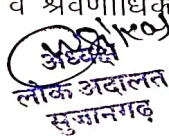 व श्रवणाधिक
अध्यक्ष
लोक अदालत
सुजानगढ़